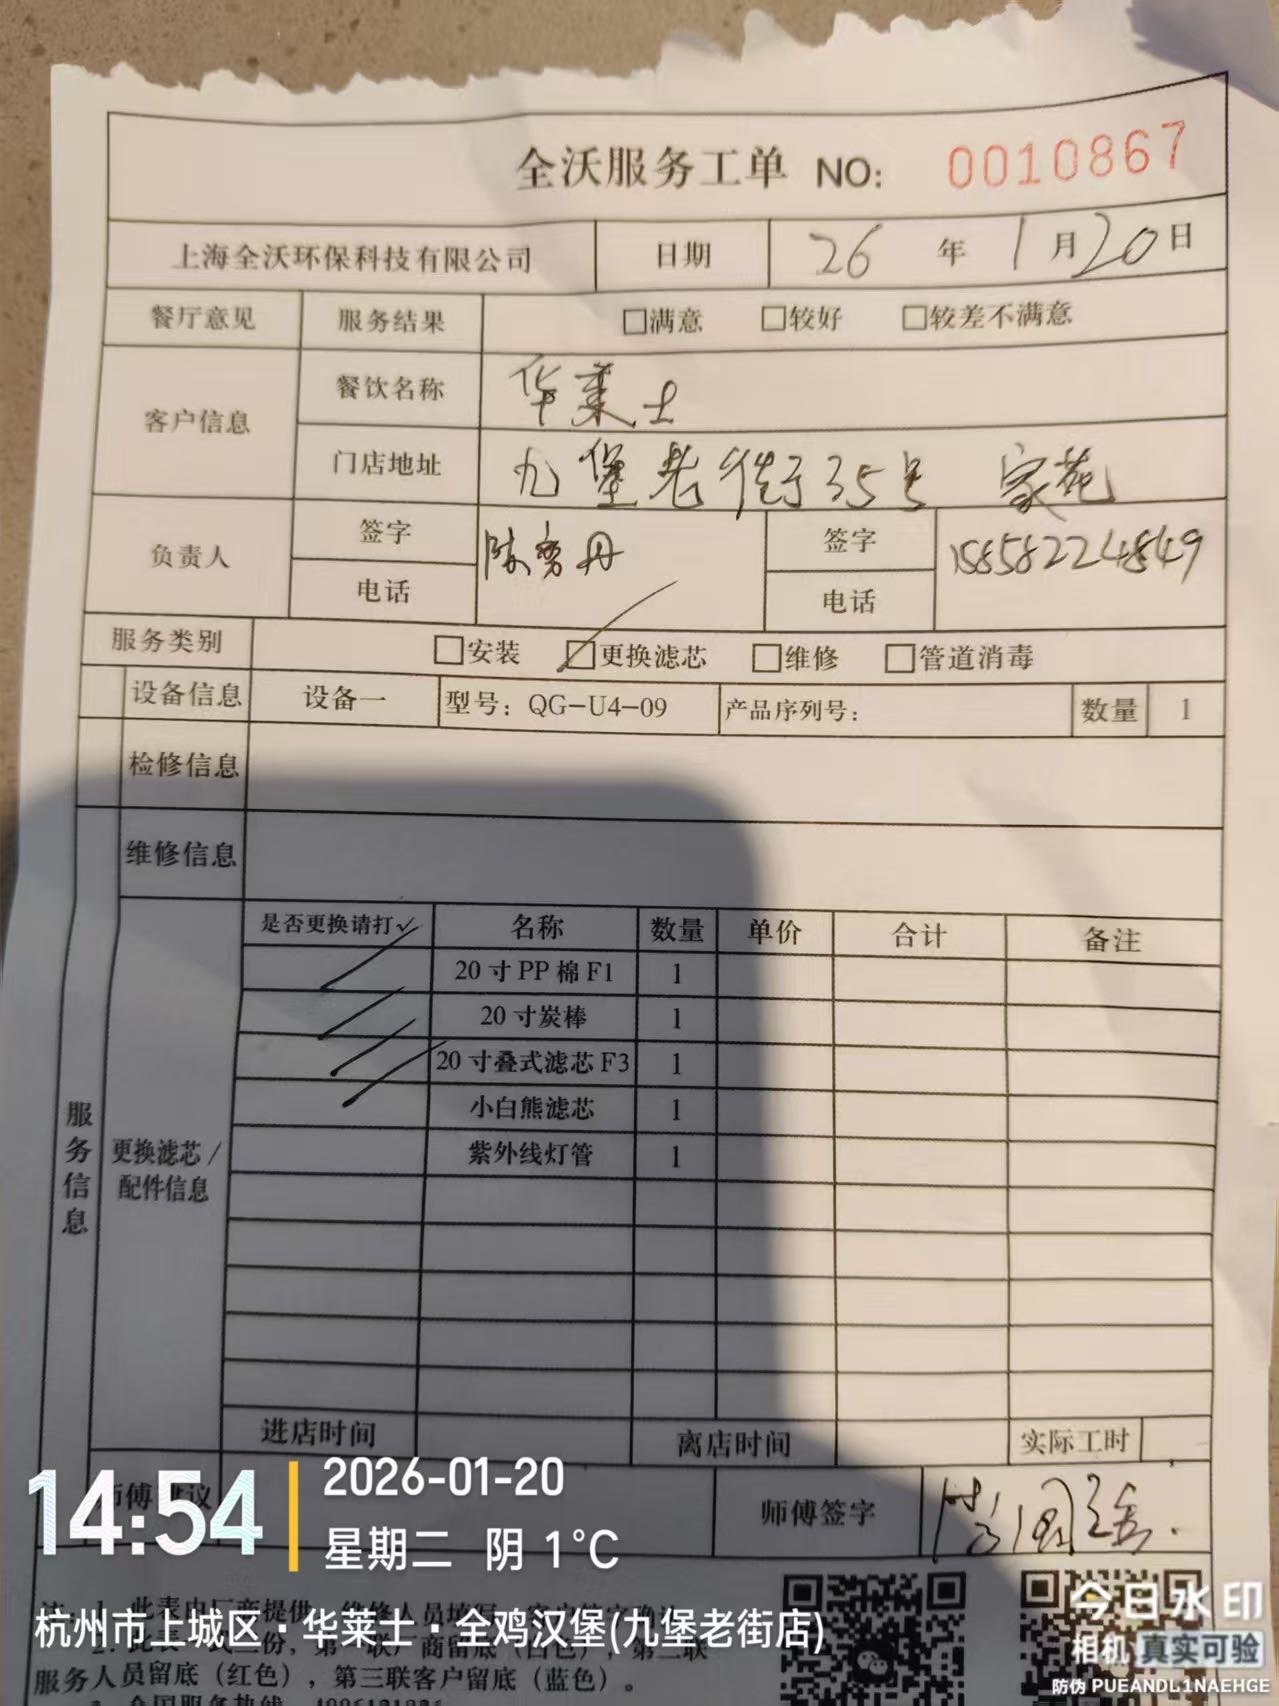 全沃服务工单 NO: 0010867
上海全沃环保科技有限公司 日期 26 年 1 月 20 日
餐厅意见 服务结果 □满意 □较好 □较差不满意
客户信息 餐饮名称 华莱士
门店地址 九堡老街35号 家苑
负责人 签字 陈 丹 签字 15858224849
电话 电话
服务类别 □安装 ☑更换滤芯 □维修 □管道消毒
设备信息 设备一 型号: QG-U4-09 产品序列号: 数量 1
检修信息
维修信息
服务信息
更换滤芯/
配件信息
是否更换请打✓ 名称 数量 单价 合计 备注
✓ 20寸PP棉F1 1
✓ 20寸炭棒 1
✓ 20寸叠式滤芯F3 1
✓ 小白熊滤芯 1
紫外线灯管 1
进店时间 离店时间 实际工时
师傅建议 师傅签字
14:54
2026-01-20
星期二 阴 1°C
注: 1. 此表由厂商提供
杭州市上城区·华莱士·全鸡汉堡(九堡老街店)
服务人员留底(红色),第三联客户留底(蓝色)。
今日水印
相机 真实可验
防伪 PUEANDL1NAEHGE